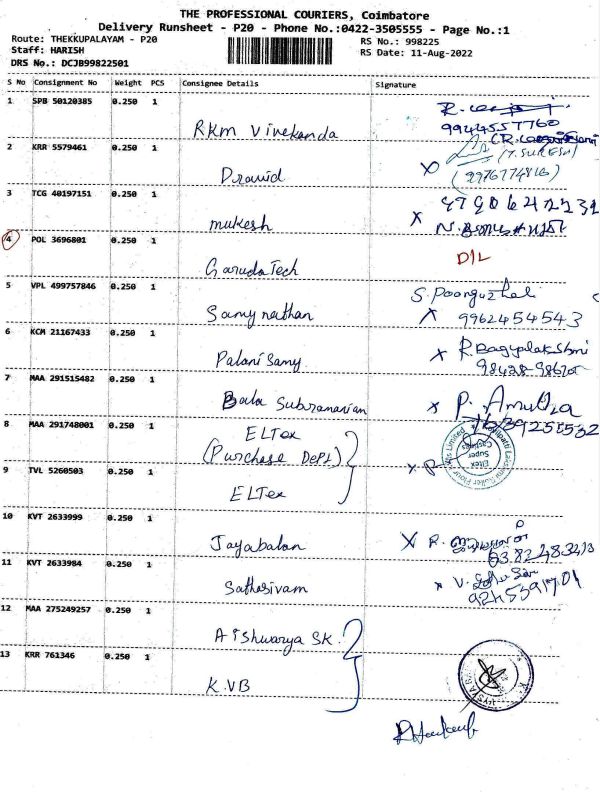 THE PROFESSIONAL COURIERS, Coimbatore
Delivery Runsheet - P20 - Phone No.:0422-3505555 - Page No.:1
Route: THEKKUPALAYAM - P20
RS No.: 998225
Staff: HARISH
RS Date: 11-Aug-2022
DRS No.: DCJB99822501
S No Consignment No Weight PCS Consignee Details Signature
1 SPB 50120385 0.250 1
RKM Vivekanda
9944557760
2 KRR 5579461 0.250 1
(T. SURESH)
Dravid X (9976774816)
3 TCG 40197151 0.250 1
mukesh X
4 POL 3696801 0.250 1
Garuda Tech D/L
5 VPL 499757846 0.250 1
S. Poonguzhali
Samynathan X 9962454543
6 KCM 21167433 0.250 1
Palani Samy X R. Bagyalakshmi
7 MAA 291515482 0.250 1
Bala Subramanian X P. Amutha
8 MAA 291748001 0.250 1
ELTex
(Purchase Dept)
Eltex Super Castings Limited
9 TVL 5260503 0.250 1
ELTex
10 KVT 2633999 0.250 1
Jayabalan X R.
11 KVT 2633984 0.250 1
Sathasivam X V.
12 MAA 275249257 0.250 1
Aishwarya SK.
13 KRR 761346 0.250 1
K.VB